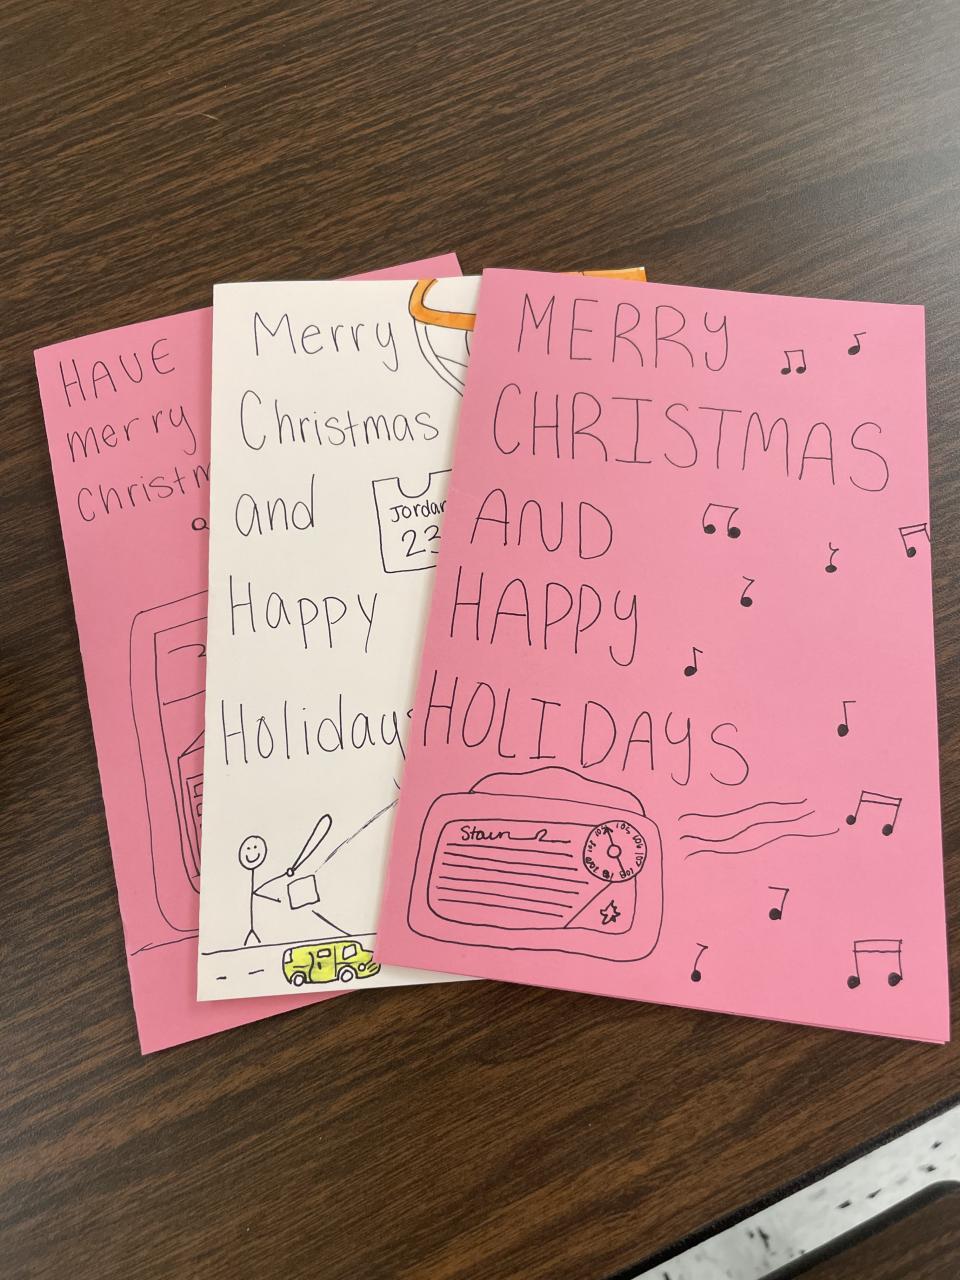 HAVE
merry
Christm
a
Merry
Christmas
and
Happy
Holidays
Jordan
23
MERRY
CHRISTMAS
AND
HAPPY
HOLIDAYS